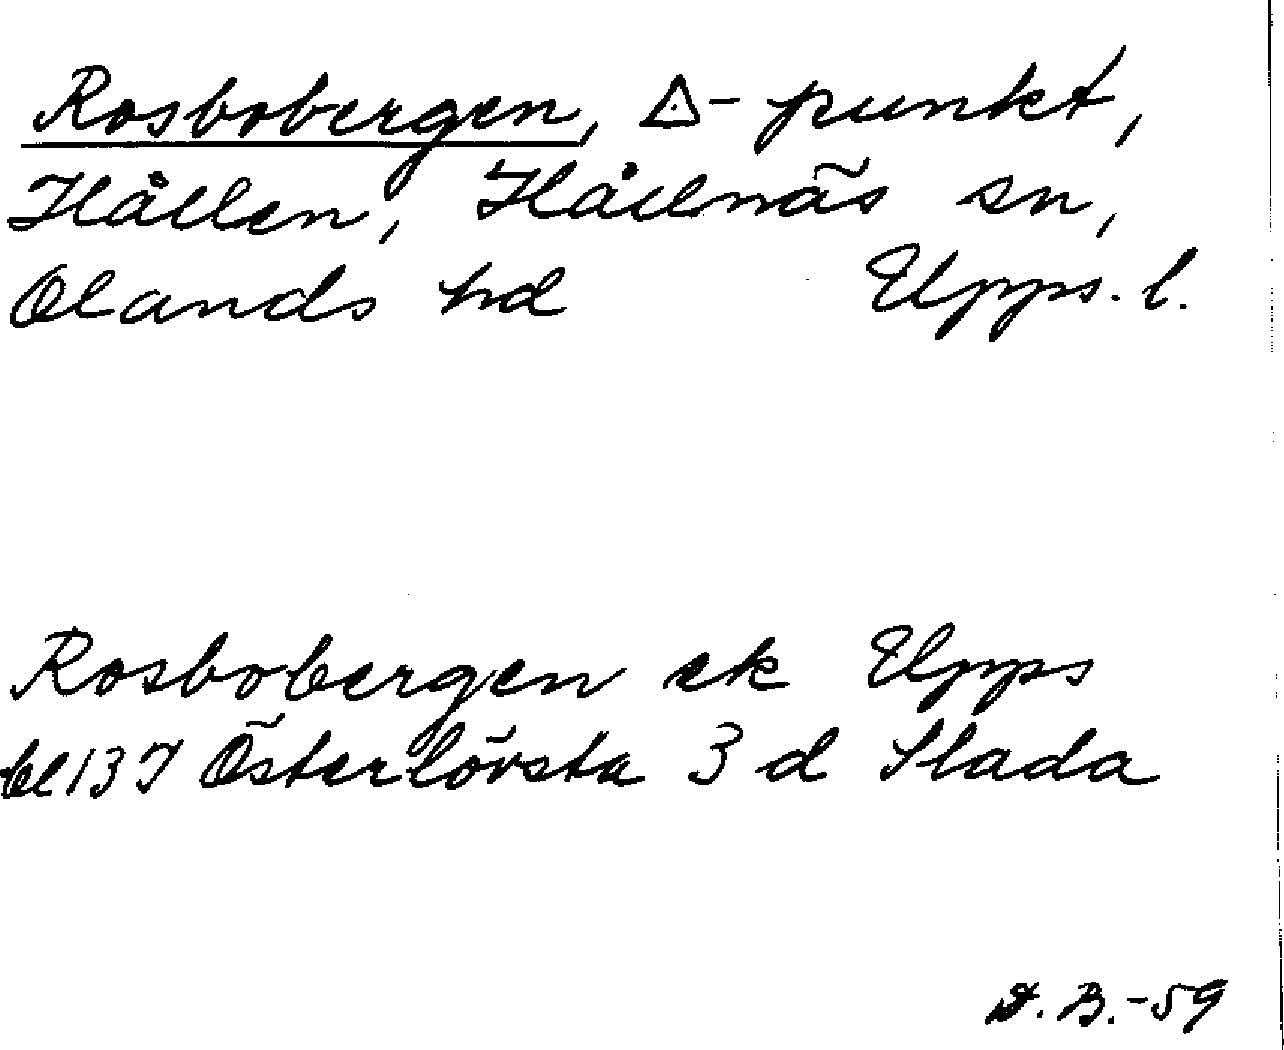 Rosbobergen, △-punkt,
Hållen, Hållnäs sn,
Olands hd Upps. l.
Rosbobergen ek Upps
bl 13 I Österlövsta 3 d Slada
D. B. -59